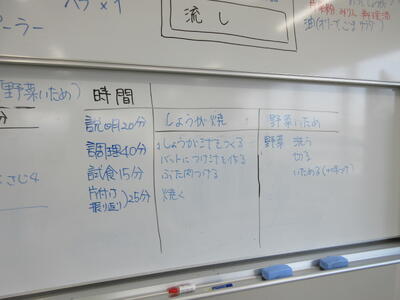 ヘラ×1
流し
ピーラー
油(オリーブ、ごま、サラダ)
野菜いため)
時間
しょうが焼
野菜いため
分
説明20分
調理40分
試食15分
片付け
振り返り)25分
しょうが汁をつくる
バットにつけ汁を作る
ぶた肉つける
焼く
野菜 洗う
切る
いためる(味つけ)
さじ4